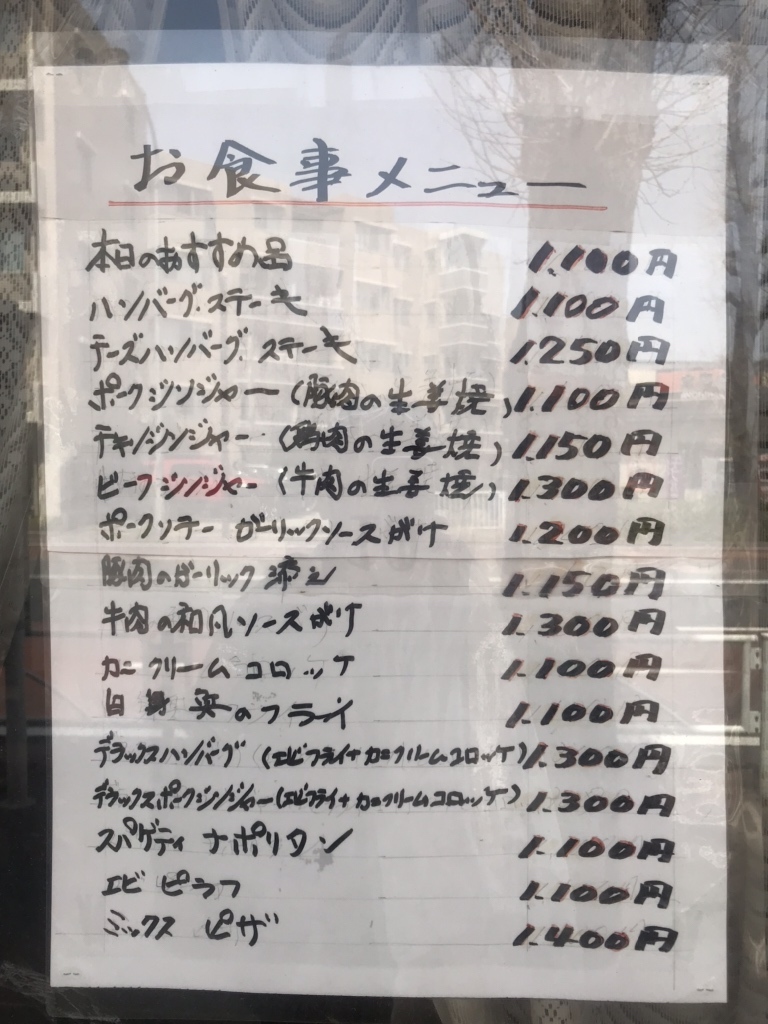 お食事メニュー
本日のおすすめ品 1.100円
ハンバーグ.ステーキ 1.100円
チーズハンバーグ.ステーキ 1.250円
ポークジンジャー(豚肉の生姜焼) 1.100円
チキンジンジャー(鶏肉の生姜焼) 1.150円
ビーフジンジャー(牛肉の生姜焼) 1.300円
ポークソテー ガーリックソースがけ 1.200円
豚肉のガーリック添え 1.150円
牛肉の和風ソースがけ 1.300円
カニクリームコロッケ 1.100円
白身魚のフライ 1.100円
デラックスハンバーグ(エビフライ+カニクリームコロッケ) 1.300円
デラックスポークジンジャー(エビフライ+カニクリームコロッケ) 1.300円
スパゲティ ナポリタン 1.100円
エビピラフ 1.100円
ミックスピザ 1.400円